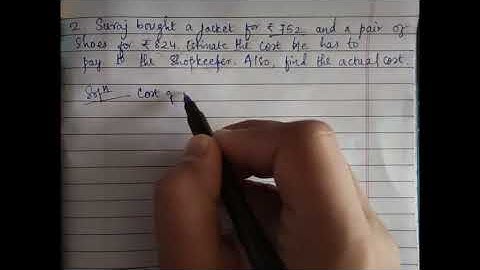 2. Suraj bought a jacket for ₹ 752 and a pair of
shoes for ₹ 824. Estimate the cost he has to
pay to the shopkeeper. Also, find the actual cost.
Sol^n Cost